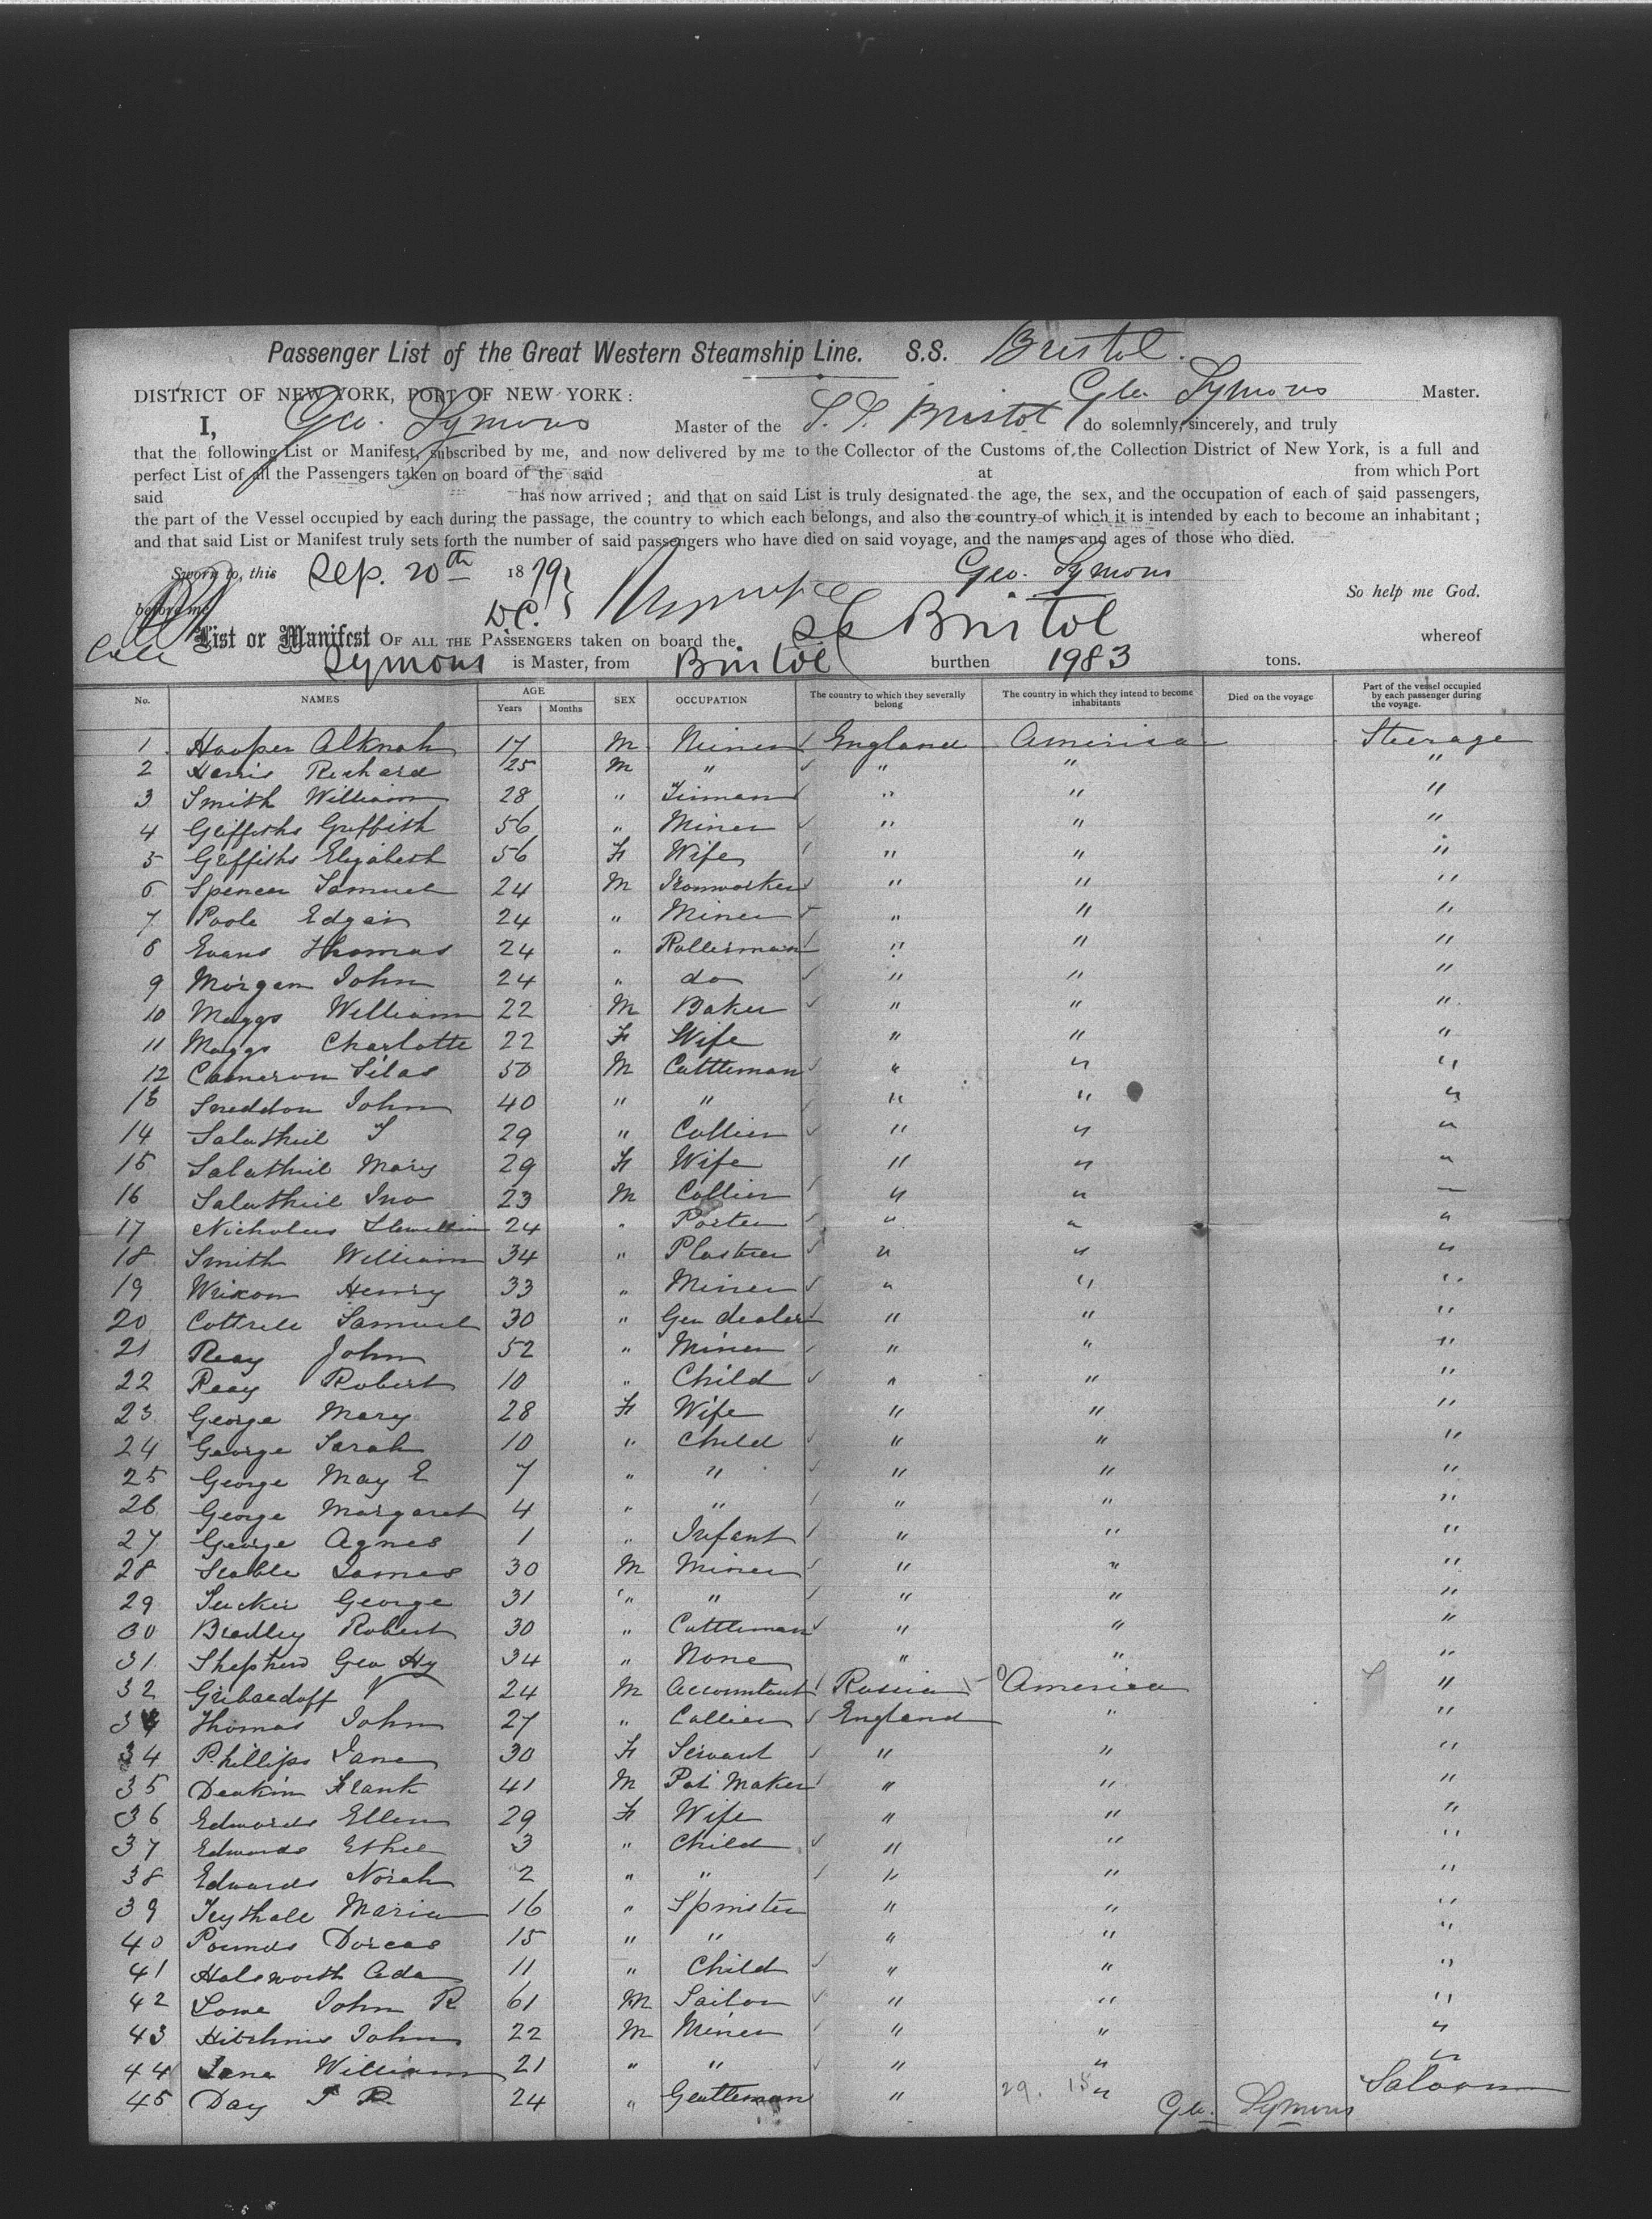 Passenger List of the Great Western Steamship Line. S.S. Bristol.
DISTRICT OF NEW YORK, PORT OF NEW YORK: Geo. Symons Master.
I, Geo. Symons Master of the S. S. Bristol do solemnly, sincerely, and truly
that the following List or Manifest, subscribed by me, and now delivered by me to the Collector of the Customs of the Collection District of New York, is a full and
perfect List of all the Passengers taken on board of the said at from which Port
said has now arrived; and that on said List is truly designated the age, the sex, and the occupation of each of said passengers,
the part of the Vessel occupied by each during the passage, the country to which each belongs, and also the country of which it is intended by each to become an inhabitant;
and that said List or Manifest truly sets forth the number of said passengers who have died on said voyage, and the names and ages of those who died.
Sworn to, this Sep. 20th 1879 Geo. Symons
before me D.C. So help me God.
List or Manifest OF ALL THE PASSENGERS taken on board the SS Bristol whereof
Symons is Master, from Bristol burthen 1983 tons.
No. NAMES AGE Years Months SEX OCCUPATION The country to which they severally belong The country in which they intend to become inhabitants Died on the voyage Part of the vessel occupied by each passenger during the voyage.
1 Hooper Alknah 17 M Miner England America Steerage
2 Harris Richard 25 M " " " "
3 Smith William 28 " Tinman " " "
4 Griffiths Griffith 56 " Miner " " "
5 Griffiths Elizabeth 56 F Wife " " "
6 Spencer Samuel 24 M Ironworker " " "
7 Poole Edgar 24 " Miner " " "
8 Evans Thomas 24 " Rollerman " " "
9 Morgan John 24 " do " " "
10 Maggs William 22 M Baker " " "
11 Maggs Charlotte 22 F Wife " " "
12 Cameron Silas 50 M Cattleman " " "
13 Sneddon John 40 " " " " "
14 Salathiel T 29 " Collier " " "
15 Salathiel Mary 29 F Wife " " "
16 Salathiel Jno 23 M Collier " " "
17 Nicholas Llewellin 24 " Porter " " "
18 Smith William 34 " Plastrer " " "
19 Wrixon Henry 33 " Miner " " "
20 Cottrell Samuel 30 " Gen dealer " " "
21 Reay John 52 " Miner " " "
22 Reay Robert 10 " Child " " "
23 George Mary 28 F Wife " " "
24 George Sarah 10 " Child " " "
25 George May E 7 " " " " "
26 George Margaret 4 " " " " "
27 George Agnes 1 " Infant " " "
28 Scable James 30 M Miner " " "
29 Tucker George 31 " " " " "
30 Bradley Robert 30 " Cattleman " " "
31 Shepherd Geo Hy 34 " None " " "
32 Gribaedoff V 24 M Accountant Russia America "
33 Thomas John 27 " Collier England " "
34 Phillips Jane 30 F Servant " " "
35 Deakin Frank 41 M Pot Maker " " "
36 Edwards Ellen 29 F Wife " " "
37 Edwards Ethel 3 " Child " " "
38 Edwards Norah 2 " " " " "
39 Maria 16 " Spinster " " "
40 Pounds Dorcas 15 " " " " "
41 Halsworth Ada 11 " Child " " "
42 Lowe John R 61 M Sailor " " "
43 Hitchins John 22 M Miner " " "
44 Lane William 21 " " " " "
45 Day T R. 24 " Gentleman " " Saloon
29. 15
Geo. Symons